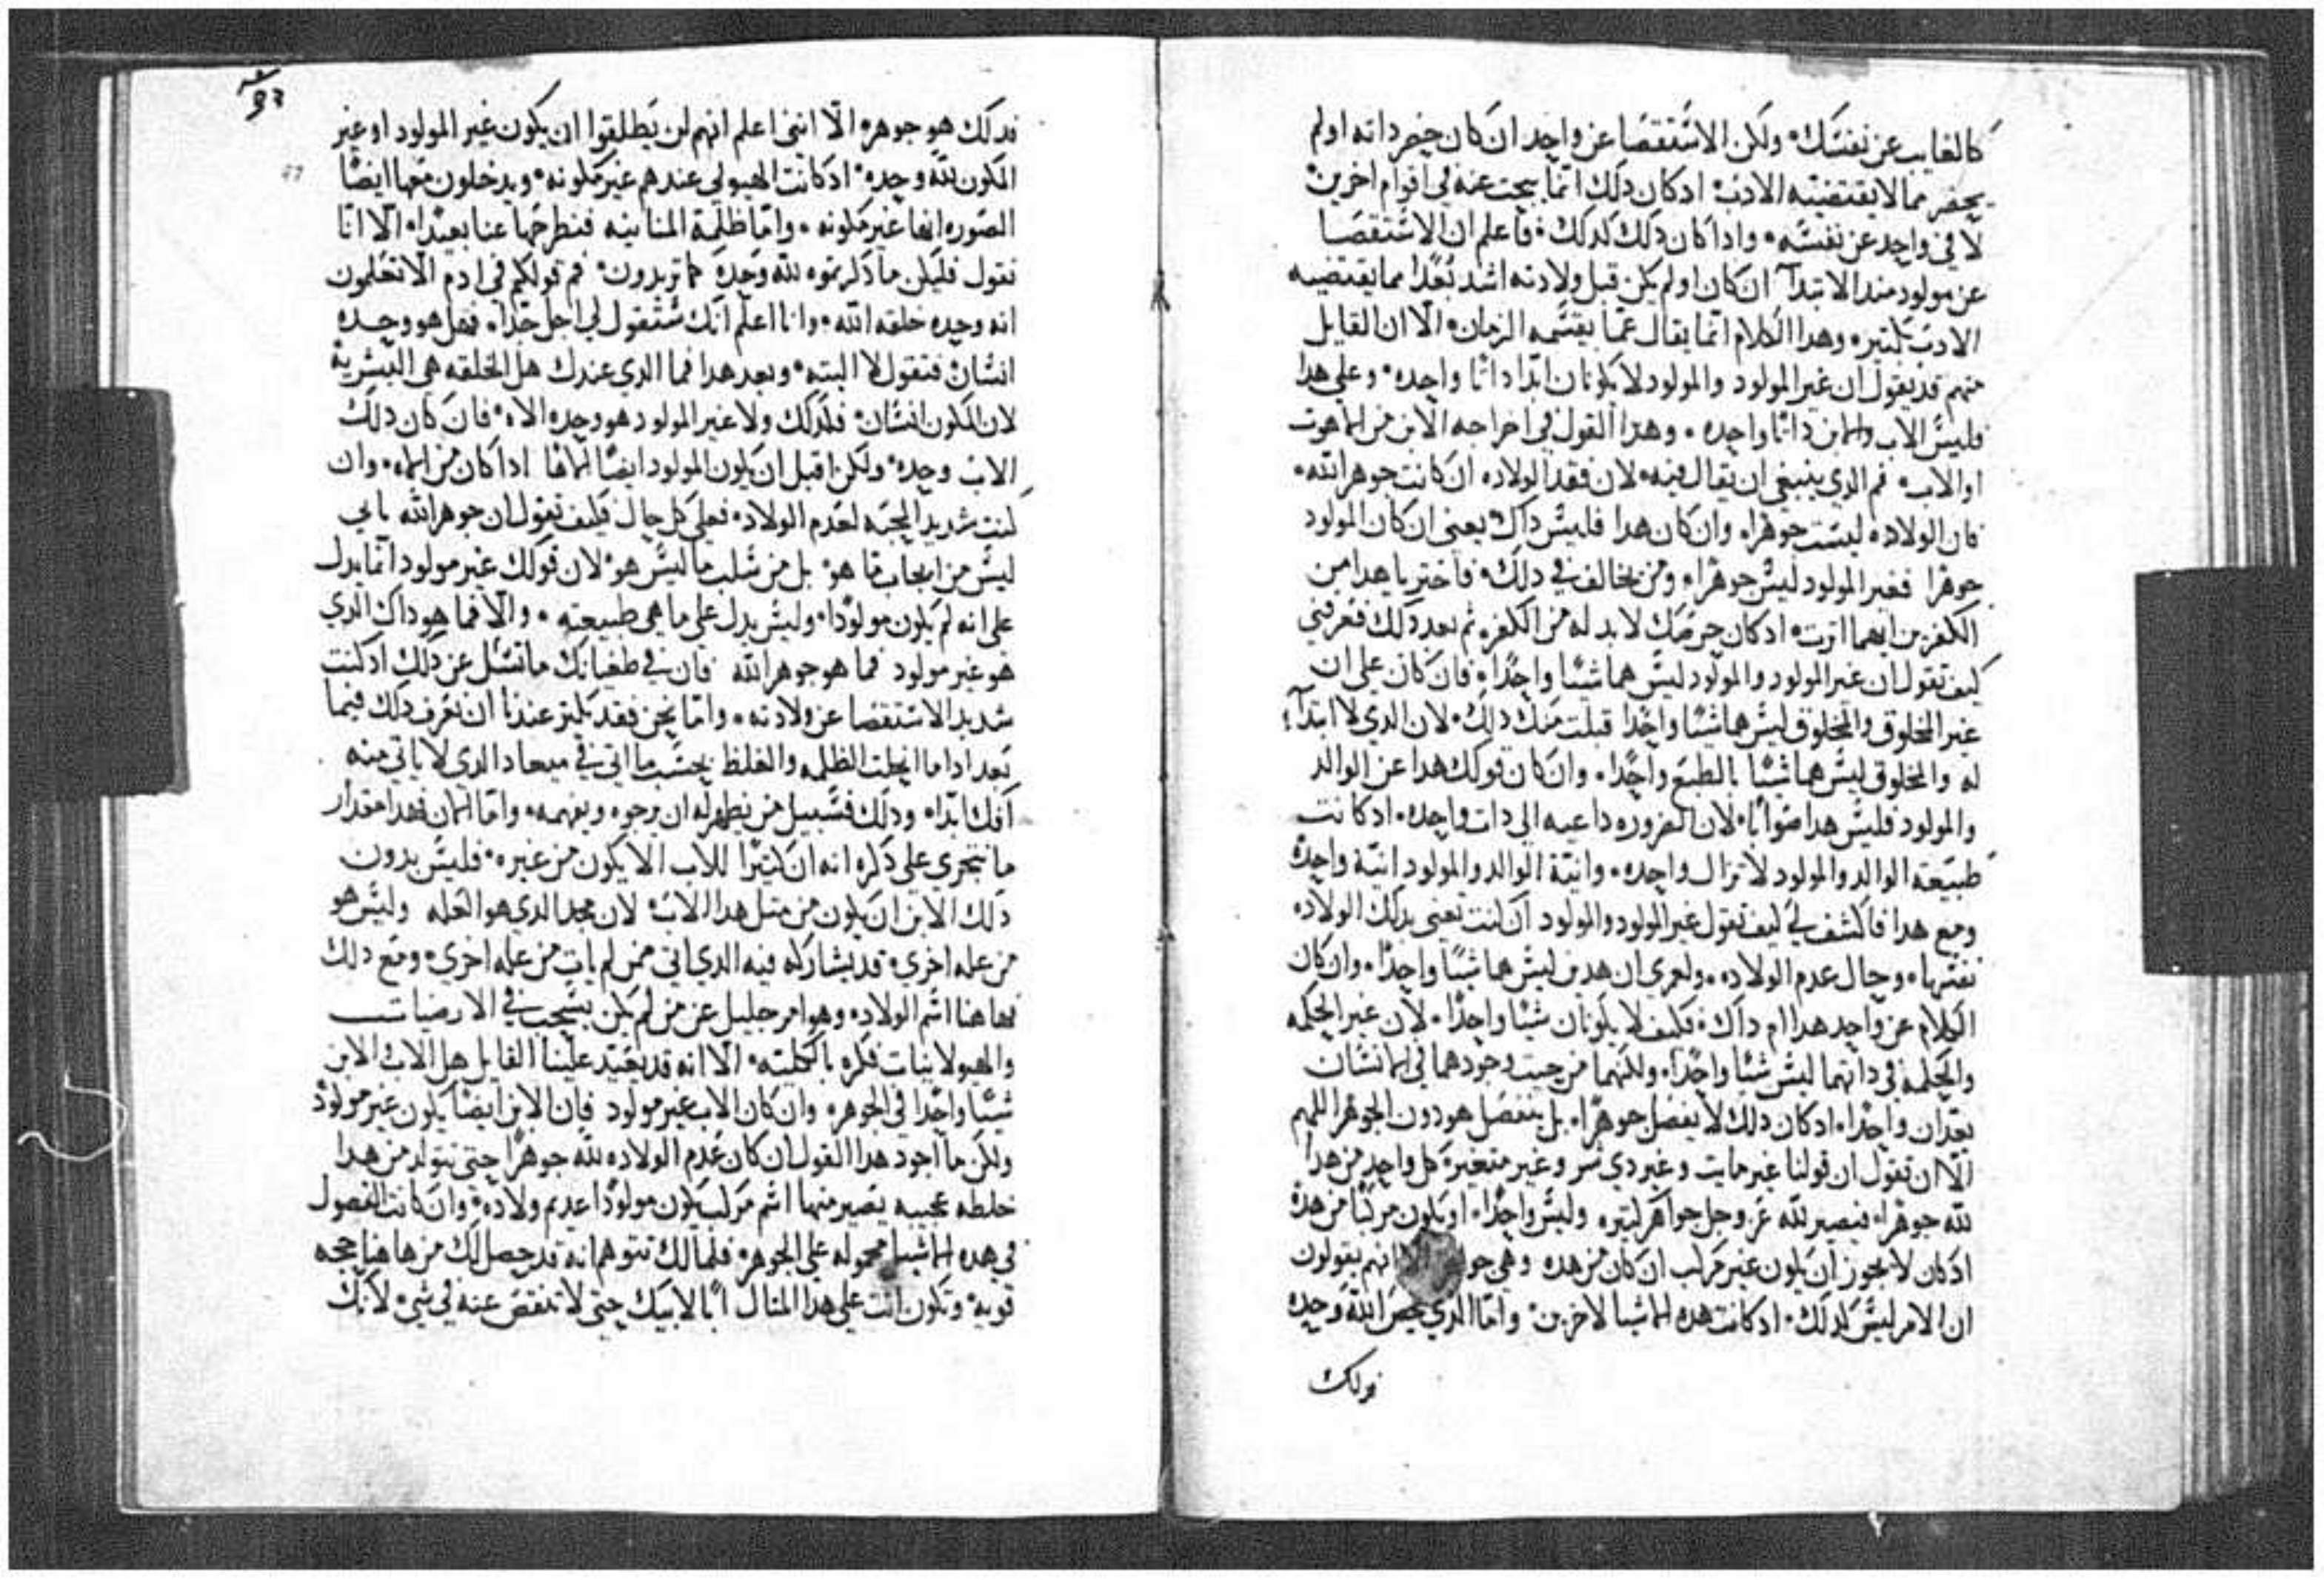 كالغايب عن نفسك ولكن الاستقصا عن واحد ان كان حضر داته اولم
يحضر مما لا يقتضيه الادب ادكان دلك انما يبحت عنه في اقوام اخرين
لا في واحد عن نفسه وادا كان دلك كدلك فاعلم ان الاستقصا
عن مولود مند الابتدآ ان كان اولم يكن قبل ولادته اشد بعدا مما يقتضيه
الادب بكتير وهدا الكلام انما يقال عما يقسمه الزمان الا ان القايل
منهم قد يقول ان غير المولود والمولود لا يكونان ابدا داتا واحده وعلي هدا
فليس الاب والابن داتا واحده وهدا القول في اخراجه الابن من اللاهوت
اوالاب فم الدي ينبغي ان يقال فيه لان فقد الولاده ان كانت جوهر الله
فان الولاده ليست جوهرا وان كان هدا فليس داك يعني ان كان المولود
جوهرا فغير المولود ليس جوهرا ومن يخالف في دلك فاختر يا هدا من
الكفرين ايهما اترت ادكان حرصك لا بد له من الكفر تم بعد دلك فعرفني
كيف تقول ان غير المولود والمولود ليس هما شيا واحدا فان كان علي ان
غير المخلوق والمخلوق ليس هما شيا واحدا قبلت منك دلك لان الدي لا ابتدآ
له والمخلوق ليس هما شيا بالطبع واحدا وان كان قولك هدا عن الوالد
والمولود فليس هدا صوابا لان الضروره داعيه الي دات واحده ادكانت
طبيعة الوالد والمولود لا تزال واحده وانية الوالد والمولود انية واحدة
ومع هدا فاكشف لي كيف تقول غير المولود والمولود ان كنت تعني بدلك الولاده
نفسها وحال عدم الولاده ولعمري ان هدين ليس هما شيا واحدا وان كان
الكلام عن واحد هدا ام داك فكيف لا يكونان شيا واحدا لان غير الحكمه
والحكمه في داتهما ليس شيا واحدا ولكنهما من حيت وجودهما في الانسان
يعدان واحدا ادكان دلك لا يفصل جوهرا بل ينفصل هو دون الجوهر اللهم
الا ان تقول ان قولنا غير مايت وغير دي شر وغير متغير كل واحد من هدا
لله جوهرا فيصير لله عز وجل جواهر كتيره وليس واحدا او يكون مركبا من هدة
ادكان لا يجوز ان يكون غير مركب ان كان من هده وهي جو انهم يقولون
ان الامر ليس كدلك ادكانت هده الاشيا لاخرين واما الدي يخص الله وحده
فدلك
93
فدلك هو جوهره الا انني اعلم انهم لن يطلقوا ان يكون غير المولود اوغير
المكون لله وحده ادكانت الهيولي عندهم غير مكونه ويدخلون معها ايضا
الصوره انها غير مكونه واما ظلمة المنانيه فنطرحها عنا بعيدا الا انا
نقول فليكن ما دكرتموه لله وحده كما تريدون فم قولكم في ادم الا تعلمون
انه وحده خلقه الله وانا اعلم انك ستقول لي اجل جدا فهل هو وحده
انسان فتقول لا البته وبعد هدا فما الدي عندك هل الخلقه هي البشرية
لان المكون انسان فكدلك ولا غير المولود هو وحده الاه فان كان دلك
الاب وحده ولكن اقبل ان يكون المولود ايضا الاها ادا كان من الاه وان
كنت شديد المحبه لعدم الولاد فعلي كل حال فكيف تقول ان جوهر الله ياتي
ليس من ايجاب ما هو بل من سلب ما ليس هو لان قولك غير مولود انما يدل
علي انه لم يكون مولودا وليس يدل علي ما هي طبيعته والا فما هو داك الدي
هو غير مولود فما هو جوهر الله فان في طغيانك ما تسل عن دلك ادكنت
شديد الاستقصا عن ولادته واما نحن فقد يكبر عندنا ان نعرف دلك فيما
بعد ادا ما انجلت الظلمه والغلظ بحسب ما اتي في ميعاد الدي لا ياتي منه
افك ابدا ودلك فسبيل من يطهر له ان يرجوه ويفهمه واما الان فهدا مقدار
ما نتجري علي دكره انه ان كبيرا للاب الا يكون من غيره فليس بدون
دلك الابن ان يكون من متل هدا الاب لان مجد الدي هو العله وليس هو
من عله اخري قد يشاركه فيه الدي اتي ممن لم يات من عله اخري ومع دلك
فهاهنا اسم الولاده وهو امر جليل عن من لم يكن يسحب في الارضيات
والهيولانيات فكره باكليته الا انه قد يعيد علينا القايل هل الاب الابن
شيا واحدا في الجوهر وان كان الاب غير مولود فان الابن ايضا يكون غير مولود
ولكن ما اجود هدا القول ان كان عدم الولاده لله جوهرا حتي يتولد من هدا
خلطه عجيبه يصير منها اسم مركب يكون مولودا عديم ولاده وان كانت الفصول
في هده الاشيا محموله علي الجوهر فلما لك تتوهم انه قد حصل لك من هاهنا حجه
قويه وتكون انت علي هدا المتال ابا لابيك حتي لا تنقص عنه في شي لانك